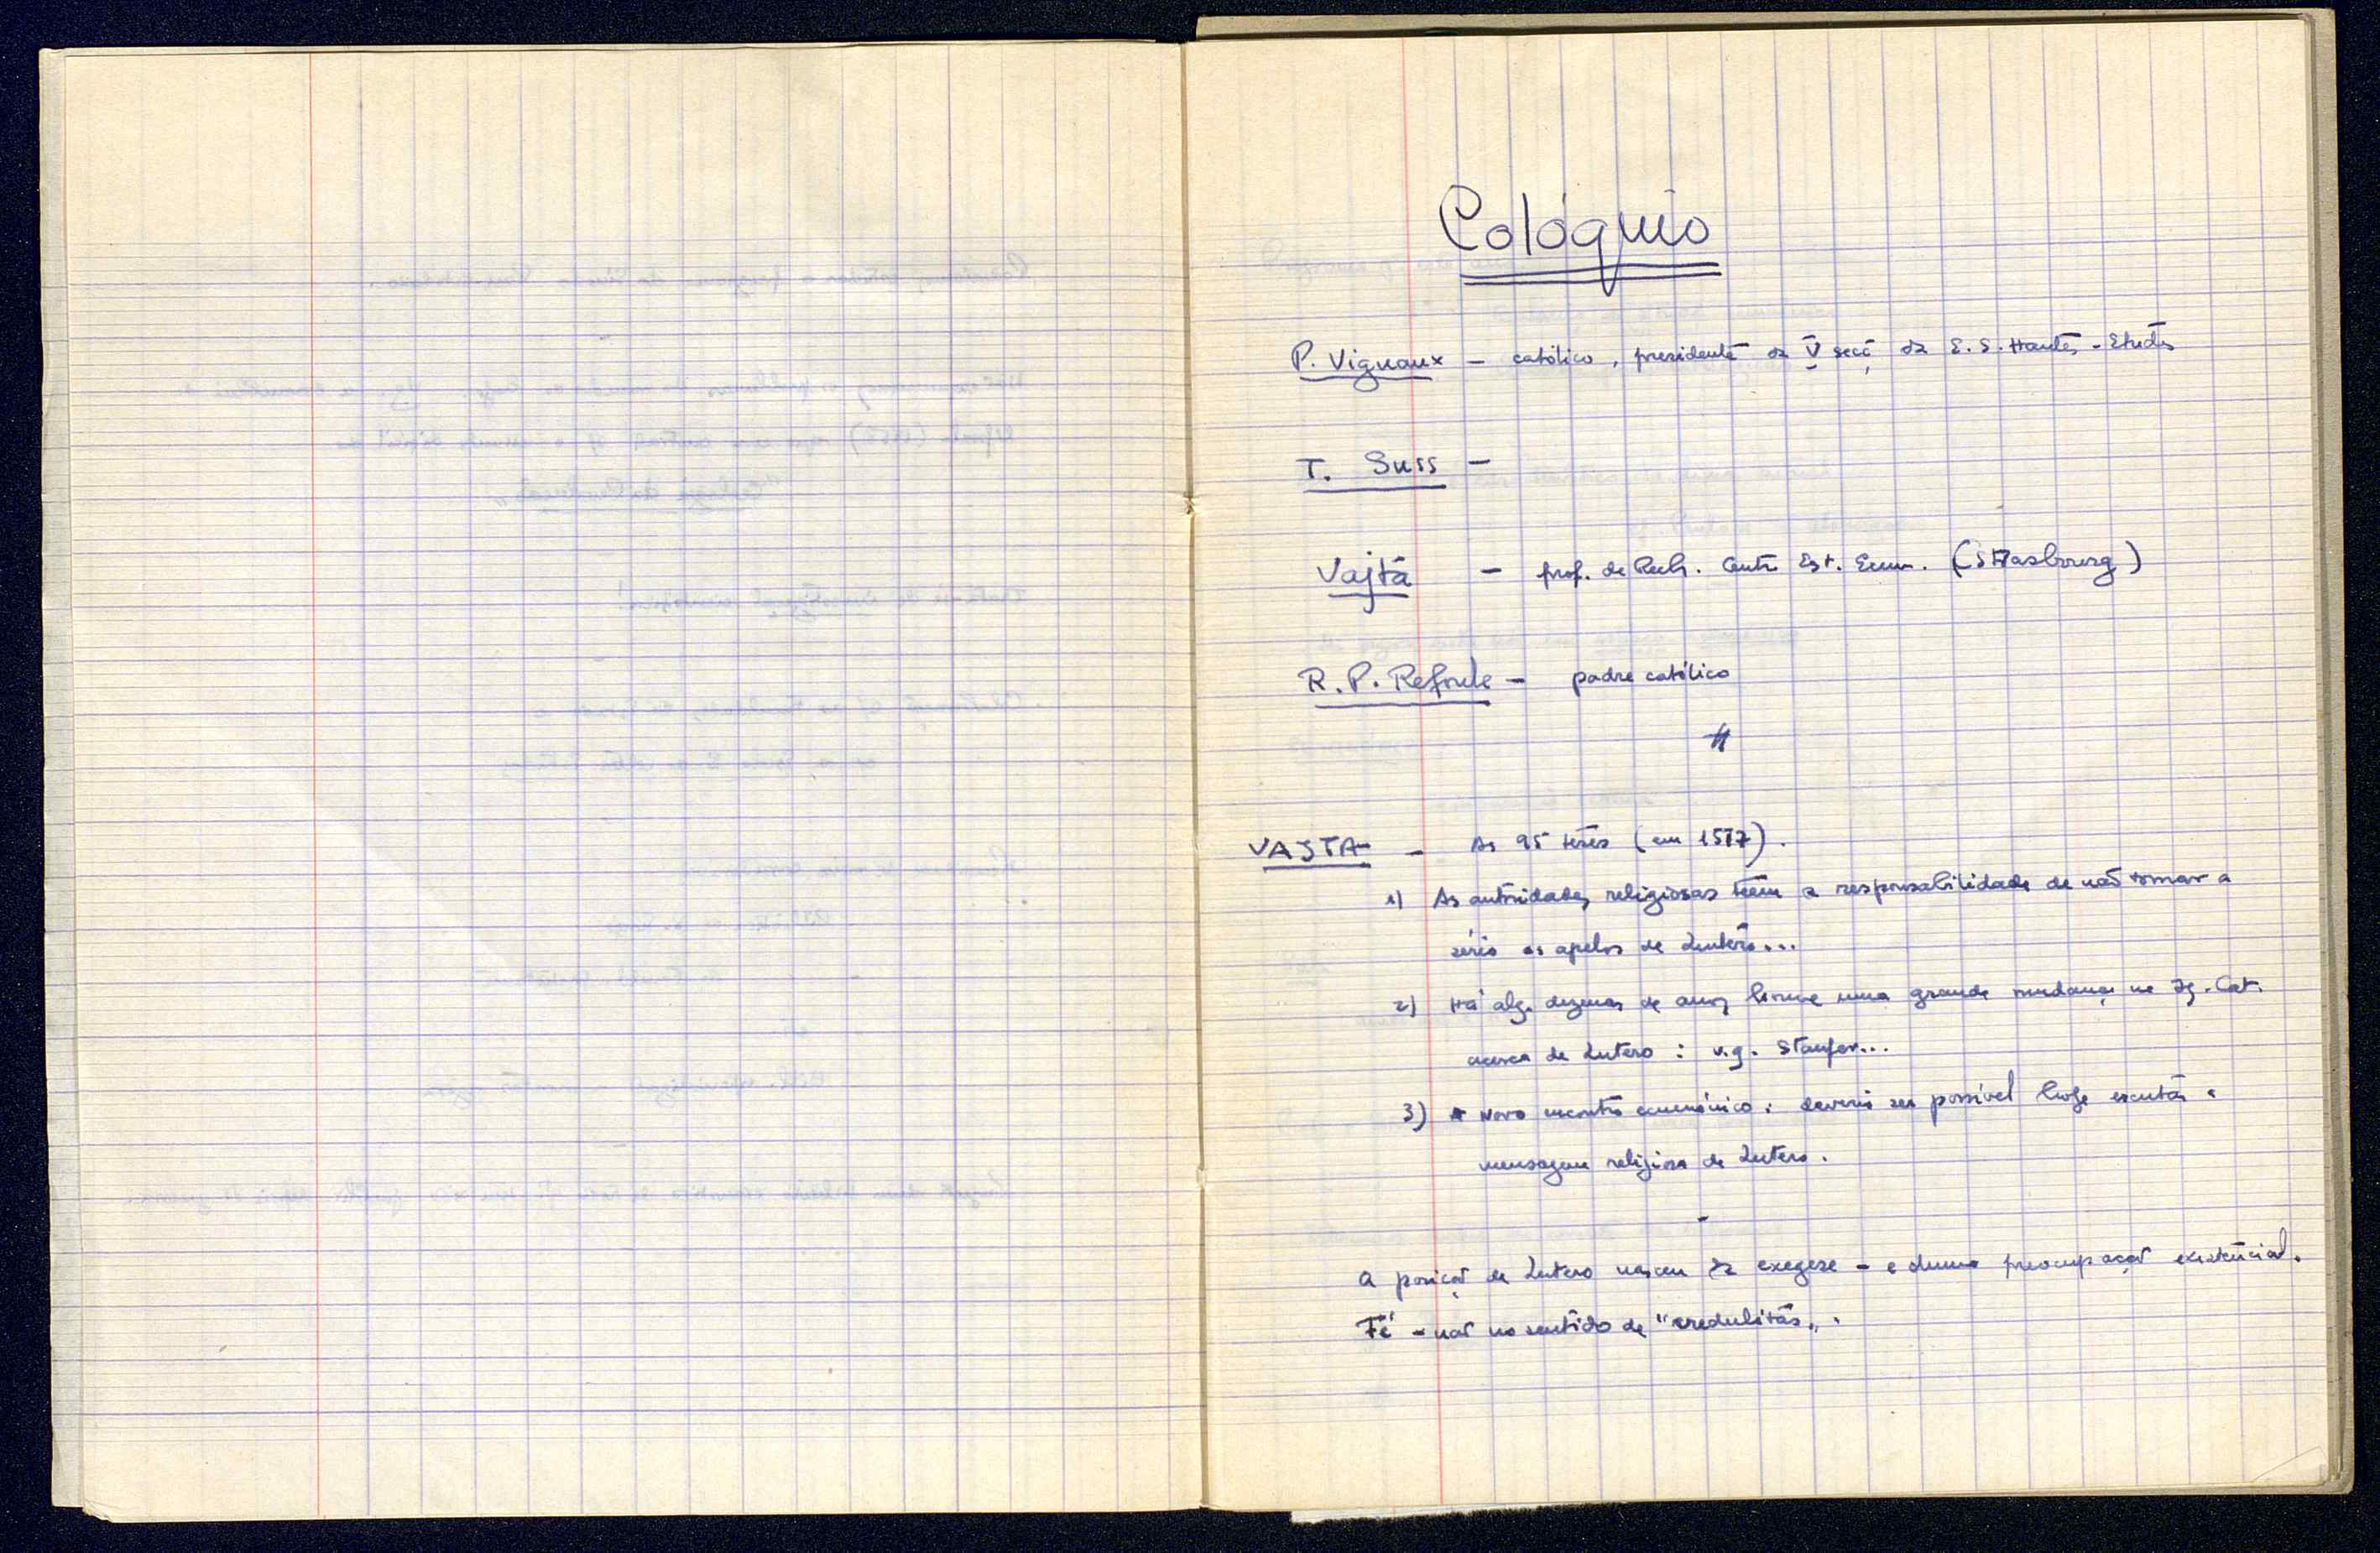 Colóquio
P. Vignaux – católico, presidente da V secç da E. S. Hautes-Etudes
T. Suss –
Vajta – prof. de Rech. Centre Est. Ecum. (Strasbourg)
R. P. Refoule – padre católico
VAJTA – As 95 teses (em 1517).
1) As autoridades religiosas teem a responsabilidade de não tomar a
sério os apelos de Lutero...
2) Há alg. dezenas de anos houve uma grande mudança na Ig. Cat.
acerca de Lutero : v.g. Staufer...
3) Novo encontro ecuménico : deveria ser possível hoje escutar a
mensagem religiosa de Lutero.
–
A posição de Lutero nasceu da exegese – e duma preocupação existêncial.
Fé – não no sentido de "credulitas".